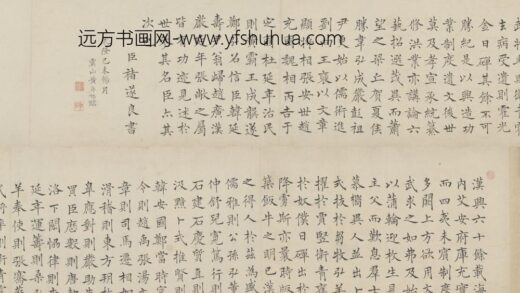 远方书画网-www.yfshuhua.com
漢興六十餘載海
內艾安府庫充實
而四夷未賓制度
多闕上方欲用文
武求之如弗及始
以蒲輪迎枚生見
主父而歎息群士
慕嚮異人並出卜
式拔於芻牧弘羊
擢於賈豎衛青奮
於奴僕日磾出於
降虜斯亦曩時版
築飯牛之明已漢
之得人於茲為盛
儒雅則公孫弘董
仲舒兒寬篤行則
石建石慶質直則
汲黯卜式推賢則
韓安國鄭當時定
令則趙禹張湯文
章則司馬遷相如
滑稽則東方朔枚
皋應對則嚴助朱
買臣曆數則唐都
洛下閎協律則李
延年運籌則桑弘
羊奉使則張騫蘇
武將率則衛青霍
去病受遺則霍光
金日磾其餘不可
勝紀是以興造功
業制度遺文後世
莫及孝宣承統纂
修洪業亦講論六
藝招選茂異而蕭
望之梁丘賀夏侯
勝韋弘成嚴彭祖
尹更始以儒術進
劉向王襃以文章
顯將相則張安世
充國魏相丙吉于
定國杜延年治民
則黃霸王成龔遂
鄭弘召信臣韓延
壽尹翁歸趙廣漢
嚴延年張敞之屬
皆有功迹見述於
世參其名臣亦其
次
臣褚遂良書